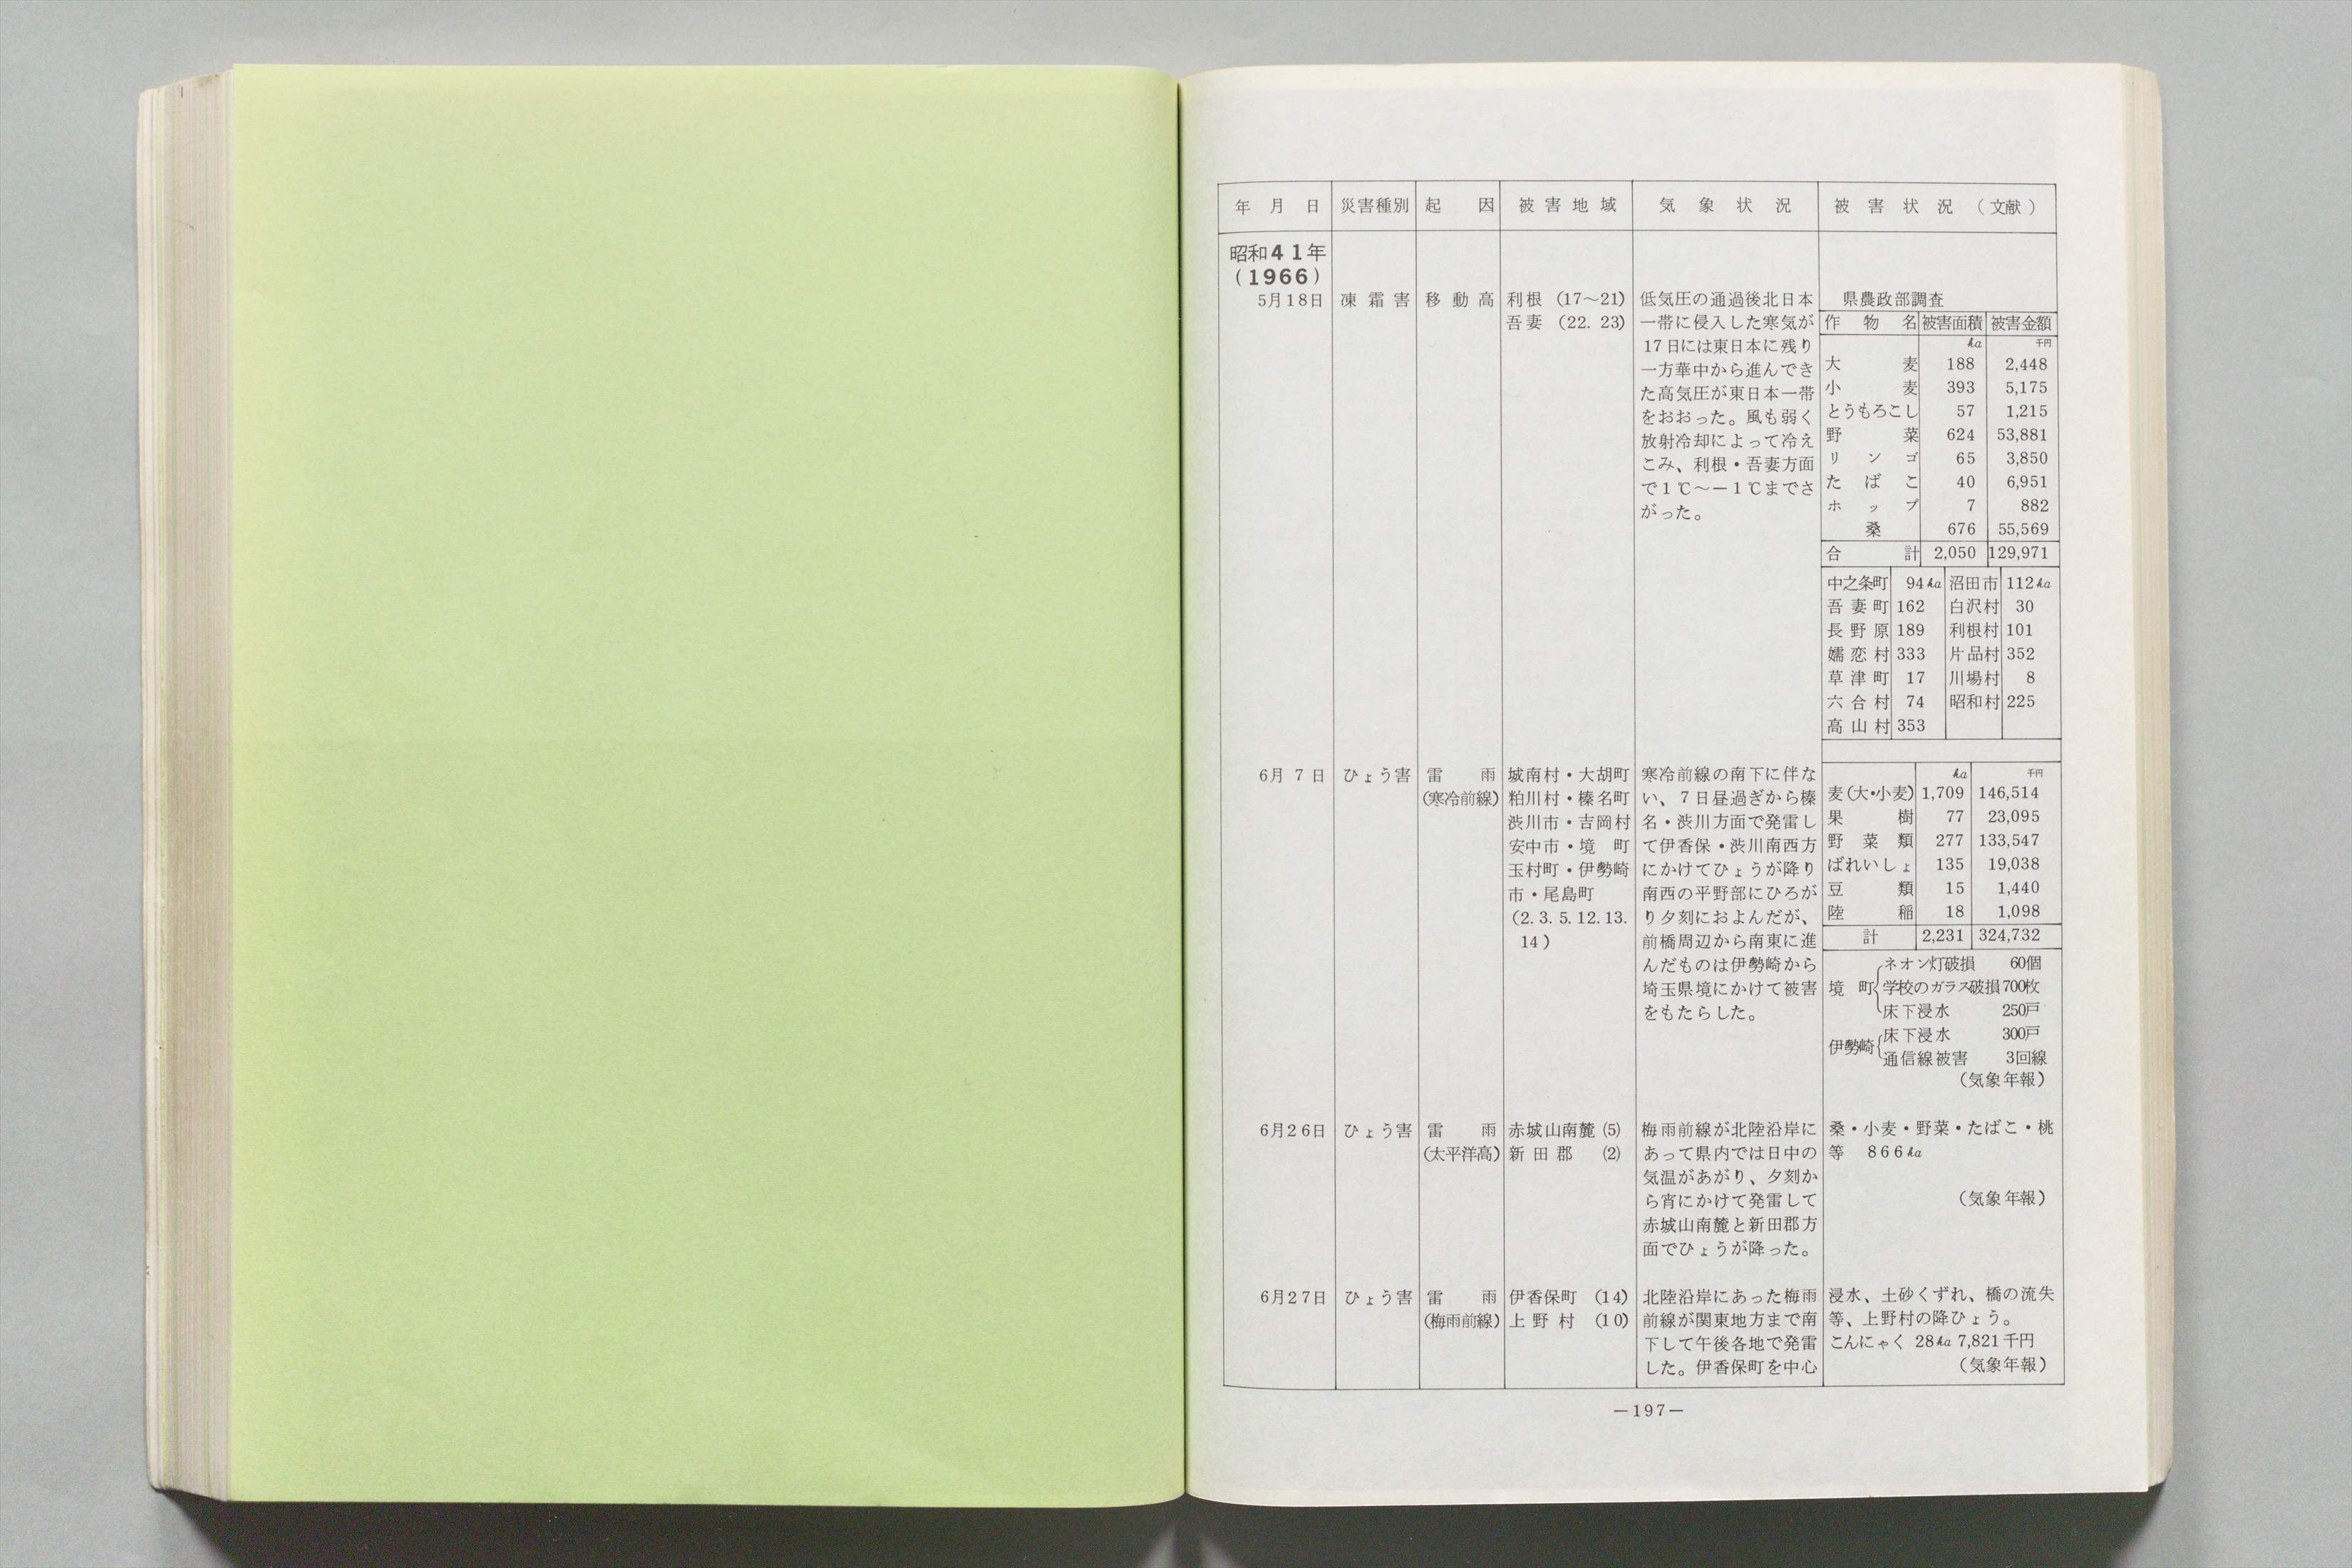 年月日 災害種別 起因 被害地域 気象状況 被害状況（文献）
昭和41年
(1966)
5月18日 凍霜害 移動高
利根 (17～21)
吾妻 (22. 23)
低気圧の通過後北日本
一帯に侵入した寒気が
17日には東日本に残り
一方華中から進んでき
た高気圧が東日本一帯
をおおった。風も弱く
放射冷却によって冷え
こみ、利根・吾妻方面
で1℃～－1℃までさ
がった。
県農政部調査
作物名 被害面積 被害金額
ha 千円
大麦 188 2,448
小麦 393 5,175
とうもろこし 57 1,215
野菜 624 53,881
リンゴ 65 3,850
たばこ 40 6,951
ホップ 7 882
桑 676 55,569
合計 2,050 129,971
中之条町 94ha 沼田市 112ha
吾妻町 162 白沢村 30
長野原 189 利根村 101
嬬恋村 333 片品村 352
草津町 17 川場村 8
六合村 74 昭和村 225
高山村 353
6月7日 ひょう害 雷雨
(寒冷前線)
城南村・大胡町
粕川村・榛名町
渋川市・吉岡村
安中市・境町
玉村町・伊勢崎
市・尾島町
(2. 3. 5. 12. 13.
14)
寒冷前線の南下に伴な
い、7日昼過ぎから榛
名・渋川方面で発雷し
て伊香保・渋川南西方
にかけてひょうが降り
南西の平野部にひろが
り夕刻におよんだが、
前橋周辺から南東に進
んだものは伊勢崎から
埼玉県境にかけて被害
をもたらした。
ha 千円
麦(大・小麦) 1,709 146,514
果樹 77 23,095
野菜類 277 133,547
ばれいしょ 135 19,038
豆類 15 1,440
陸稲 18 1,098
計 2,231 324,732
ネオン灯破損 60個
境町 学校のガラス破損700枚
床下浸水 250戸
伊勢崎 床下浸水 300戸
通信線被害 3回線
(気象年報)
6月26日 ひょう害 雷雨
(太平洋高)
赤城山南麓 (5)
新田郡 (2)
梅雨前線が北陸沿岸に
あって県内では日中の
気温があがり、夕刻か
ら宵にかけて発雷して
赤城山南麓と新田郡方
面でひょうが降った。
桑・小麦・野菜・たばこ・桃
等 866ha
(気象年報)
6月27日 ひょう害 雷雨
(梅雨前線)
伊香保町 (14)
上野村 (10)
北陸沿岸にあった梅雨
前線が関東地方まで南
下して午後各地で発雷
した。伊香保町を中心
浸水、土砂くずれ、橋の流失
等、上野村の降ひょう。
こんにゃく 28ha 7,821千円
(気象年報)
－197－